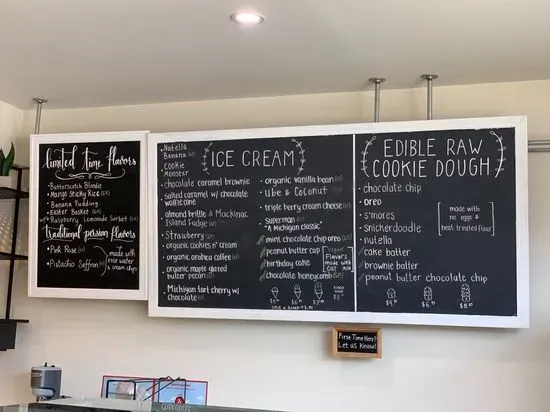 limited Time flavors
• Butterscotch Blondie
• Mango Sticky Rice (GF)
• Banana Pudding
• Easter Basket (GF)
• Raspberry Lemonade Sorbet (GF)
traditional persian flavors
• Pink Rose (GF)
• Pistachio Saffron (GF)
made with
rose water
& cream chips
ICE CREAM
• Nutella
Banana (GF)
• Cookie
Monster
• chocolate caramel brownie
• salted caramel w/ chocolate
waffle cone
• almond brittle & Mackinac
Island Fudge (GF)
• Strawberry (GF)
• organic cookies n' cream
• organic arabica coffee (GF)
• organic maple glazed
butter pecan (GF)
• Michigan tart cherry w/
chocolate (GF)
• organic vanilla bean (GF)
• Ube & Coconut (GF)
• triple berry cream cheese (GF)
• Superman (GF)
"A Michigan classic"
• mint chocolate chip oreo (GF)
• peanut butter cup
• birthday cake
• chocolate honeycomb (GF)
vegan!
Flavors
made with
Oat
milk
EDIBLE RAW
COOKIE DOUGH
• chocolate chip
• oreo
• s'mores
• snickerdoodle
• nutella
• cake batter
• brownie batter
• peanut butter chocolate chip
made with
no eggs &
heat treated flour
First Time Here?
Let us Know!